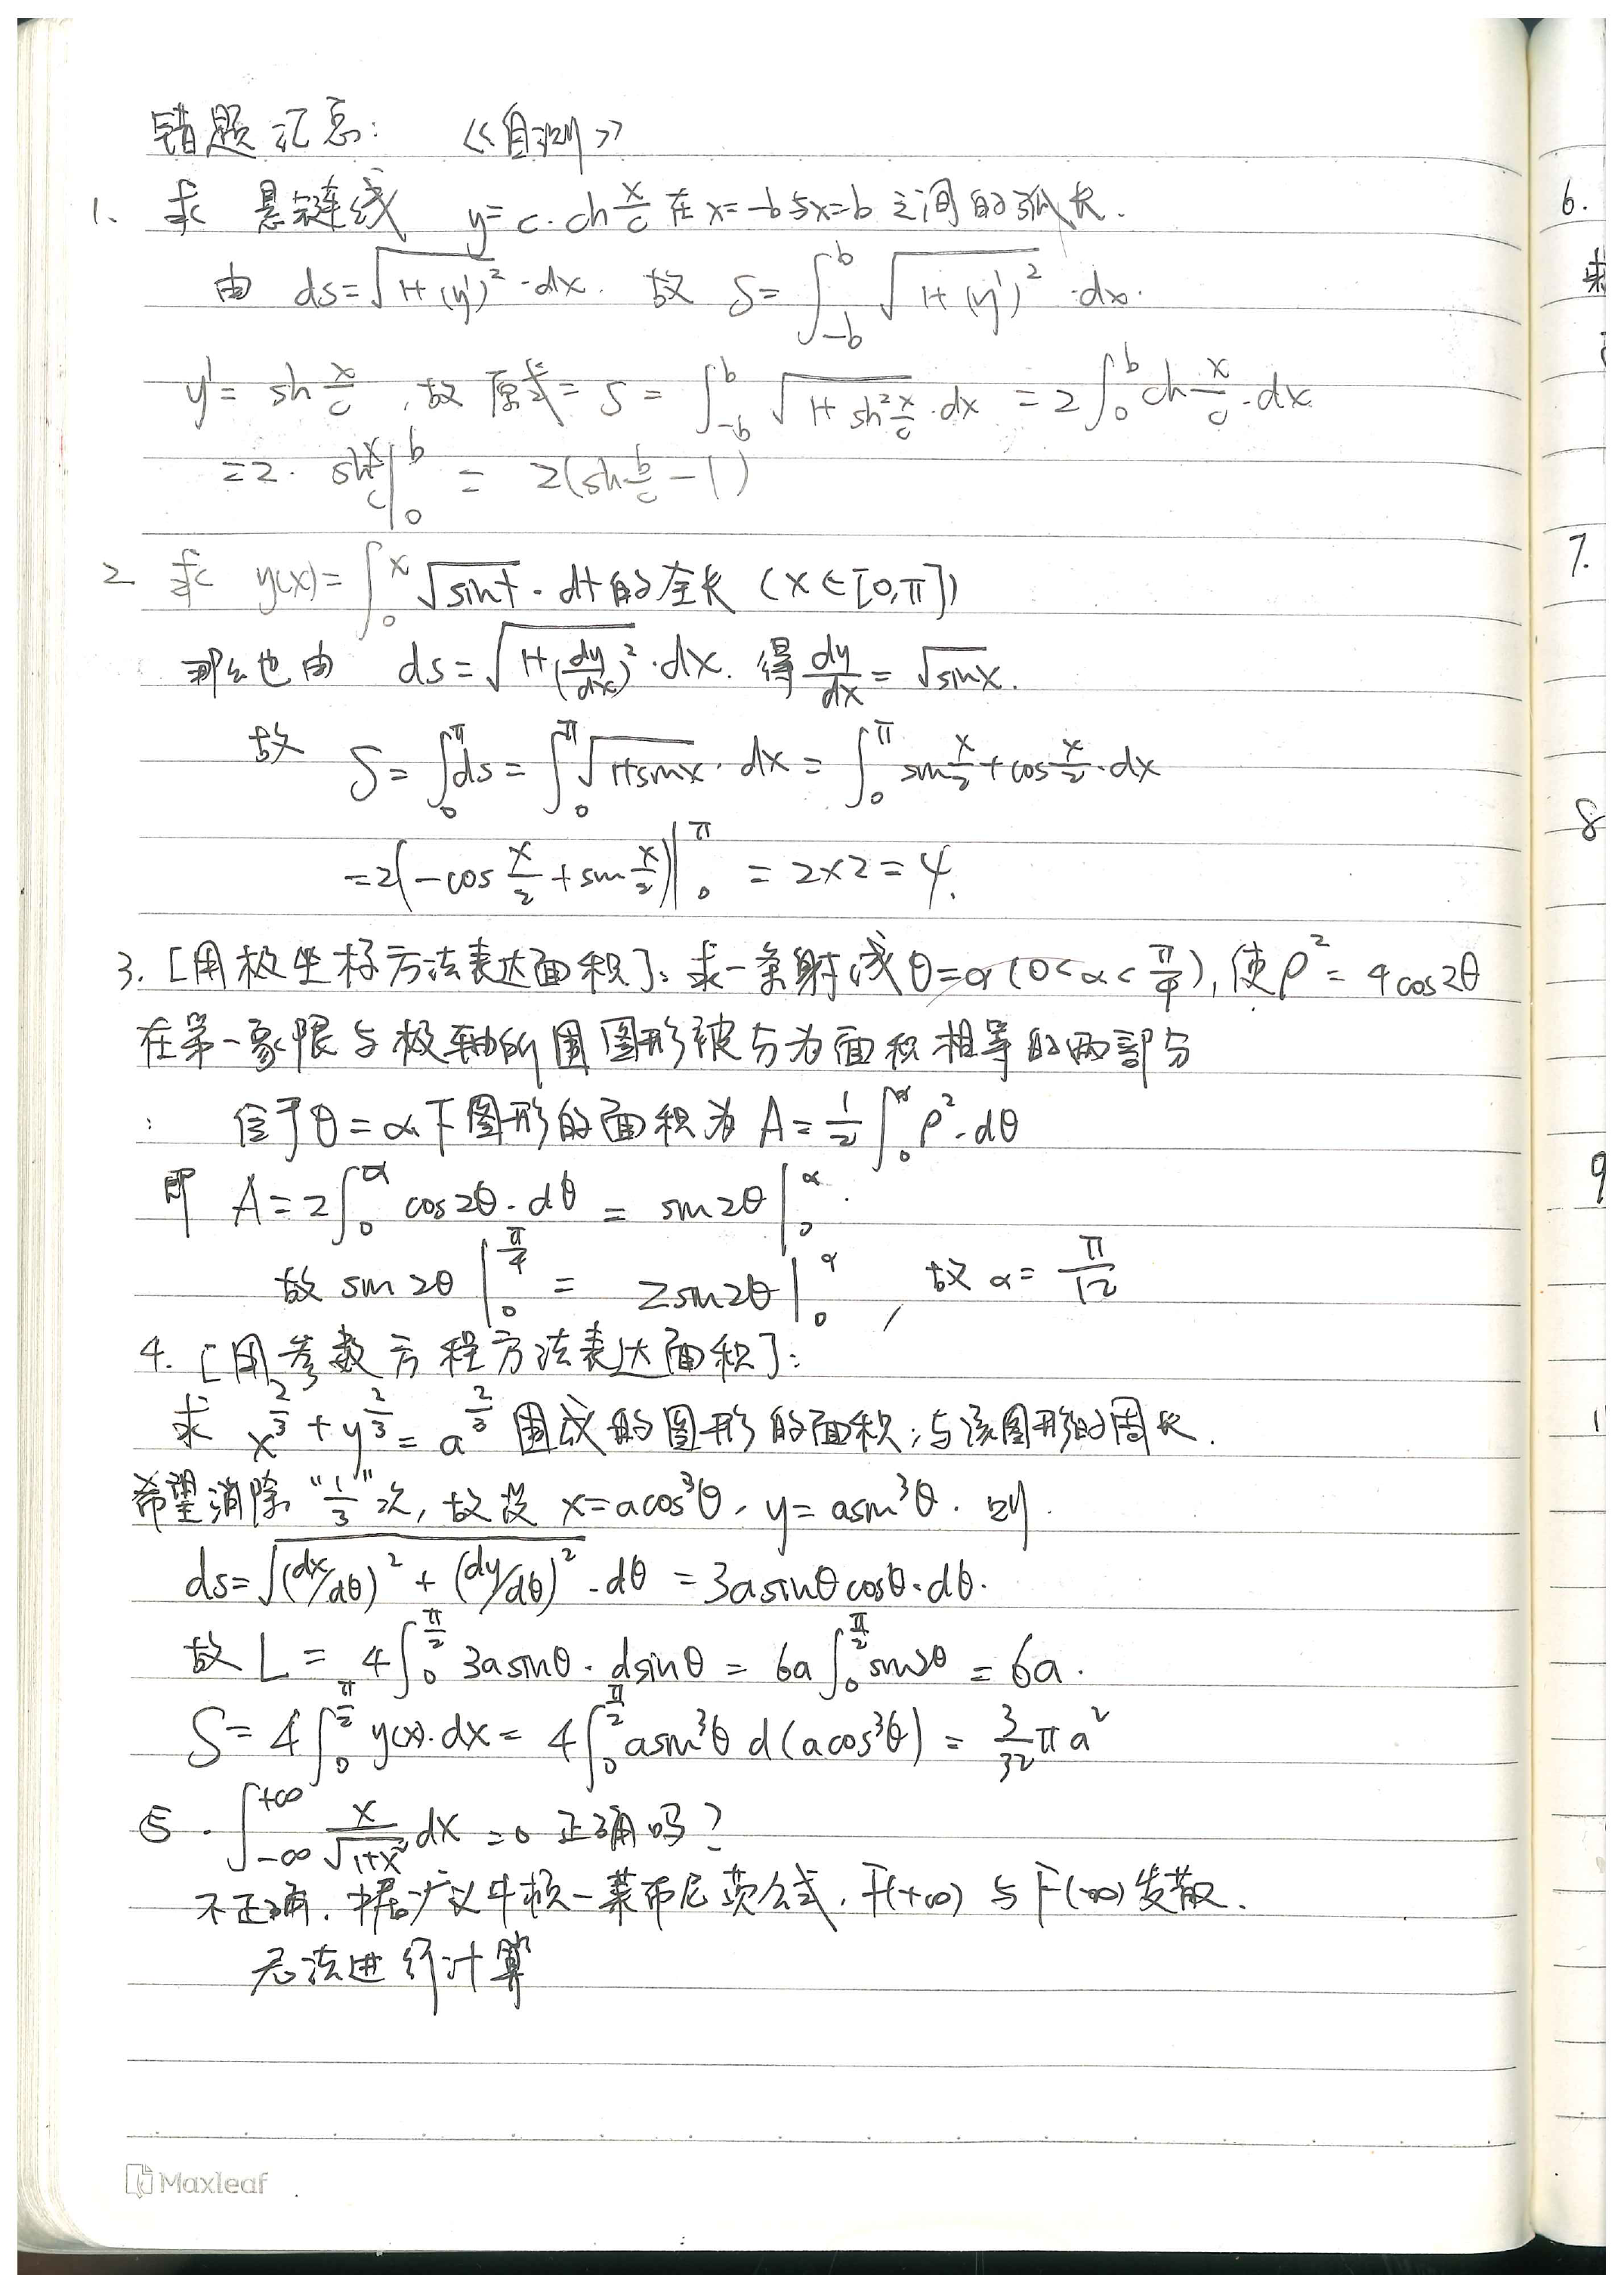 错题汇总: 《自测》
1. 求 悬链线 y=c·ch x/c 在 x=-b与x=b 之间的弧长.
由 ds=√(1+(y')²)·dx. 故 S=∫_{-b}^{b} √(1+(y')²)·dx.
y'= sh x/c, 故 原式= S = ∫_{-b}^{b} √(1+sh² x/c)·dx = 2∫_0^b ch x/c·dx
=2· sh x/c |_0^b = 2(sh b/c - 1)
2 求 y(x)=∫_0^x √sint·dt 的全长 (x∈[0,π])
那么也由 ds=√(1+(dy/dx)²)·dx. 得 dy/dx = √sinx.
故 S=∫_0^π ds=∫_0^π √(1+sinx)·dx=∫_0^π sin x/2+cos x/2·dx
=2(-cos x/2+sin x/2)|_0^π = 2×2=4.
3. [用极坐标方法表达面积]: 求一条射线θ=α(0<α<π/4), 使ρ²=4cos2θ
在第一象限与极轴所围图形被分为面积相等的两部分
: 位于θ=α下图形的面积为 A=1/2∫_0^α ρ²·dθ
即 A=2∫_0^α cos2θ·dθ = sin2θ|_0^α.
故 sin2θ|_0^{π/4} = 2sin2θ|_0^α, 故 α=π/12
4. [用参数方程方法表达面积]:
求 x^{2/3}+y^{2/3}=a^{2/3} 围成的图形的面积; 与该图形的周长.
希望消除“1/3”次, 故设 x=acos³θ, y=asin³θ. 则.
ds=√((dx/dθ)²+(dy/dθ)²)·dθ =3asinθcosθ·dθ.
故 L = 4∫_0^{π/2} 3asinθ·dsinθ = 6a∫_0^{π/2} sin2θ = 6a.
S=4∫_0^{π/2} y(x)·dx= 4∫_0^{π/2} asin³θ d(acos³θ) = 3/32 πa²
5. ∫_{-∞}^{+∞} x/√(1+x²) dx =0 正确吗?
不正确. 据广义牛顿-莱布尼茨公式, F(+∞) 与 F(-∞)发散.
无法进行计算
6.
7.
8
9
Maxleaf